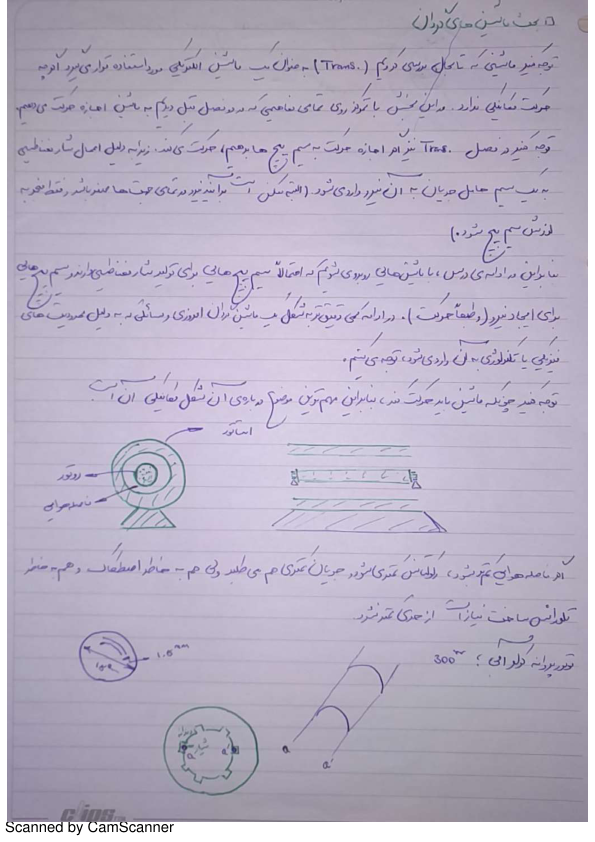 □ بحث ماشین های گردان
توجه کنید ماشینی که تابحال بررسی کردیم (Trans.) به عنوان یک ماشین الکتریکی مورد استفاده قرار می گیرد اگرچه
حرکت مکانیکی ندارد. در این بخش با تمرکز روی تمامی مفاهیمی که در دو فصل قبل دیدیم به ماشین اجازه حرکت می دهیم.
توجه کنید در فصل Trans. نیز اگر اجازه حرکت به سیم پیچ ها بدهیم، حرکت می کند. زیرا به دلیل اعمال شار مغناطیسی
به یک سیم حامل جریان به آن نیرو وارد می شود (البته ممکن است برآیند نیرو در تمامی جهت ها صفر باشد و فقط منجر به
لرزش سیم پیچ شود.)
بنابراین در ادامه ی درس، با ماشین هایی روبرو می شویم که احتمالاً سیم پیچ هایی برای تولید شار مغناطیسی دارند و سیم پیچ هایی
برای ایجاد نیرو (و طبعاً حرکت). در ادامه کمی دقیق تر به شکل یک ماشین گردان امروزی و مسائلی که به دلیل محدودیت های
فیزیکی یا تکنولوژی به آن وارد می شود، توجه می کنیم.
توجه کنید چونکه ماشین باید حرکت کند، بنابراین مهم ترین موضوع درباره ی آن شکل مکانیکی آن است
استاتور
روتور
فاصله هوایی
اگر فاصله هوایی کم تر شود، رلوکتانس کمتری می شود و جریان کمتری هم می طلبد ولی هم به خاطر اصطکاک و هم به خاطر
تلورانس ساخت نیاز است از حدی کمتر نشود
1.5 mm
300
شیار
a a'
a
a'